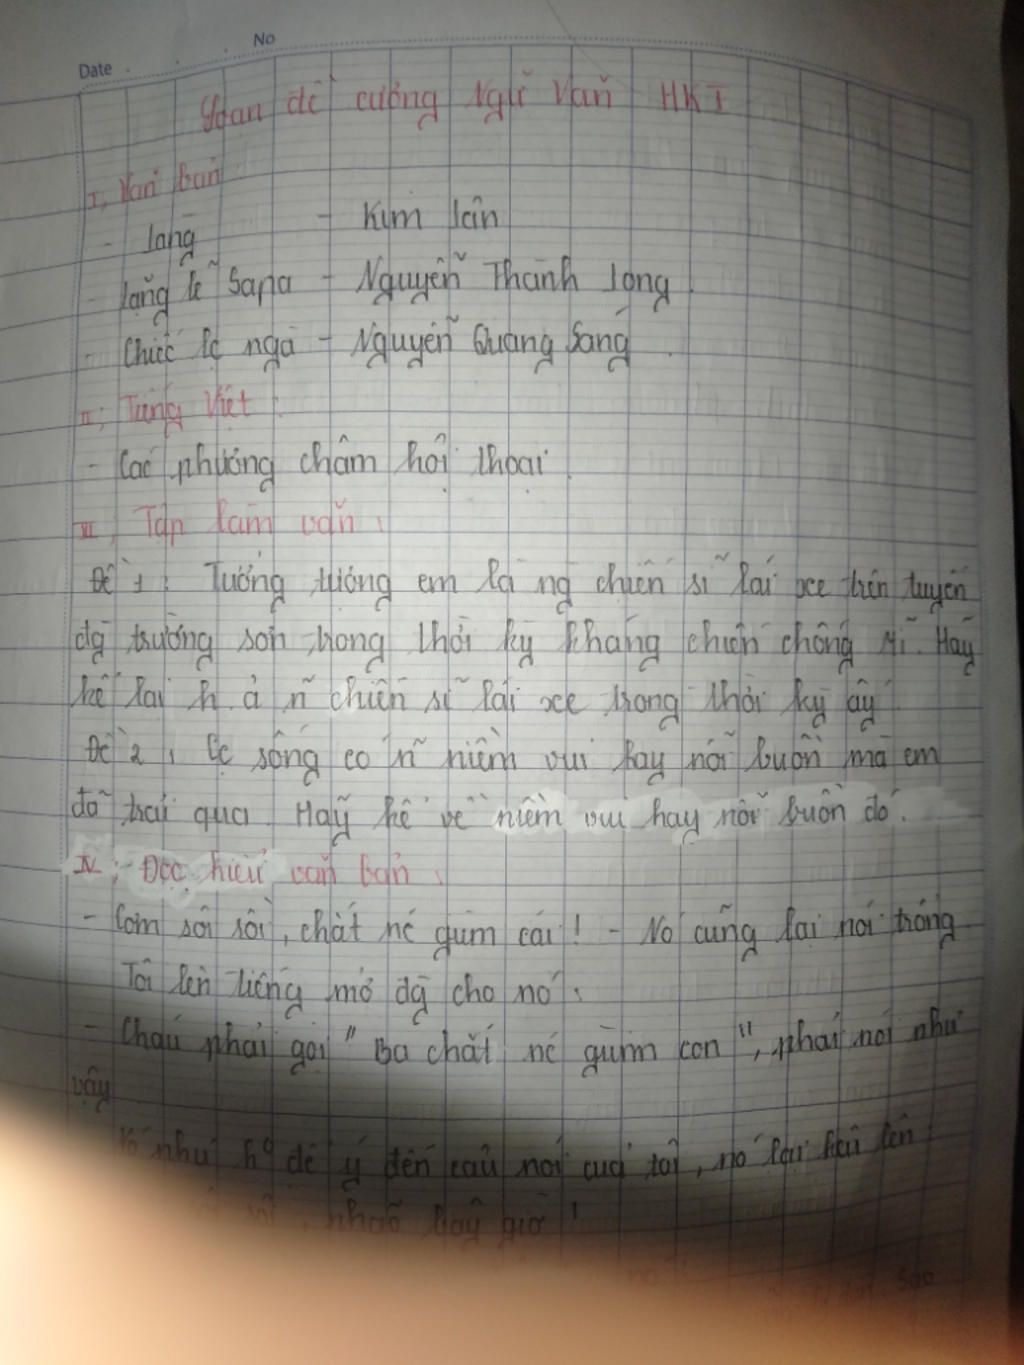 Date No
Soạn đề cương Ngữ Văn HKI
I, Văn bản
- Làng - Kim Lân
- Lặng lẽ Sapa - Nguyễn Thành Long
- Chiếc lc ngà - Nguyễn Quang Sáng
II, Tiếng Việt:
- Các phương châm hội thoại
III, Tập làm văn:
Đề 1: Tưởng tượng em là ng chiến sĩ lái xe trên tuyến
đg trường sơn trong thời kỳ kháng chiến chống Mĩ. Hãy
kể lại h.ả n~ chiến sĩ lái xe trong thời kỳ ấy
Đề 2: Cc sống có n~ niềm vui hay nỗi buồn mà em
đã trải qua. Hãy kể về niềm vui hay nỗi buồn đó.
IV, Đọc hiểu văn bản:
- Cơm sôi rồi, chắt nc giùm cái! - Nó cũng lại nói trổng
Tôi lên tiếng mở đg cho nó:
- Cháu phải gọi "Ba chắt nc giùm con", phải nói như
vậy
Nó như ko để ý đến câu nói của tôi, nó lại kêu lên
nhão bây giờ!